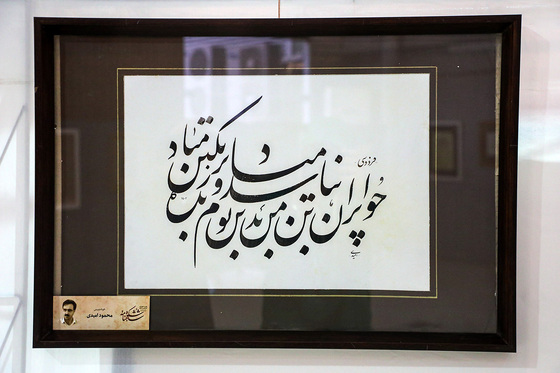 فردوسی
چو ایران نباشد تن من مباد
بدین بوم و بر زنده یک تن مباد
محمود امیدی